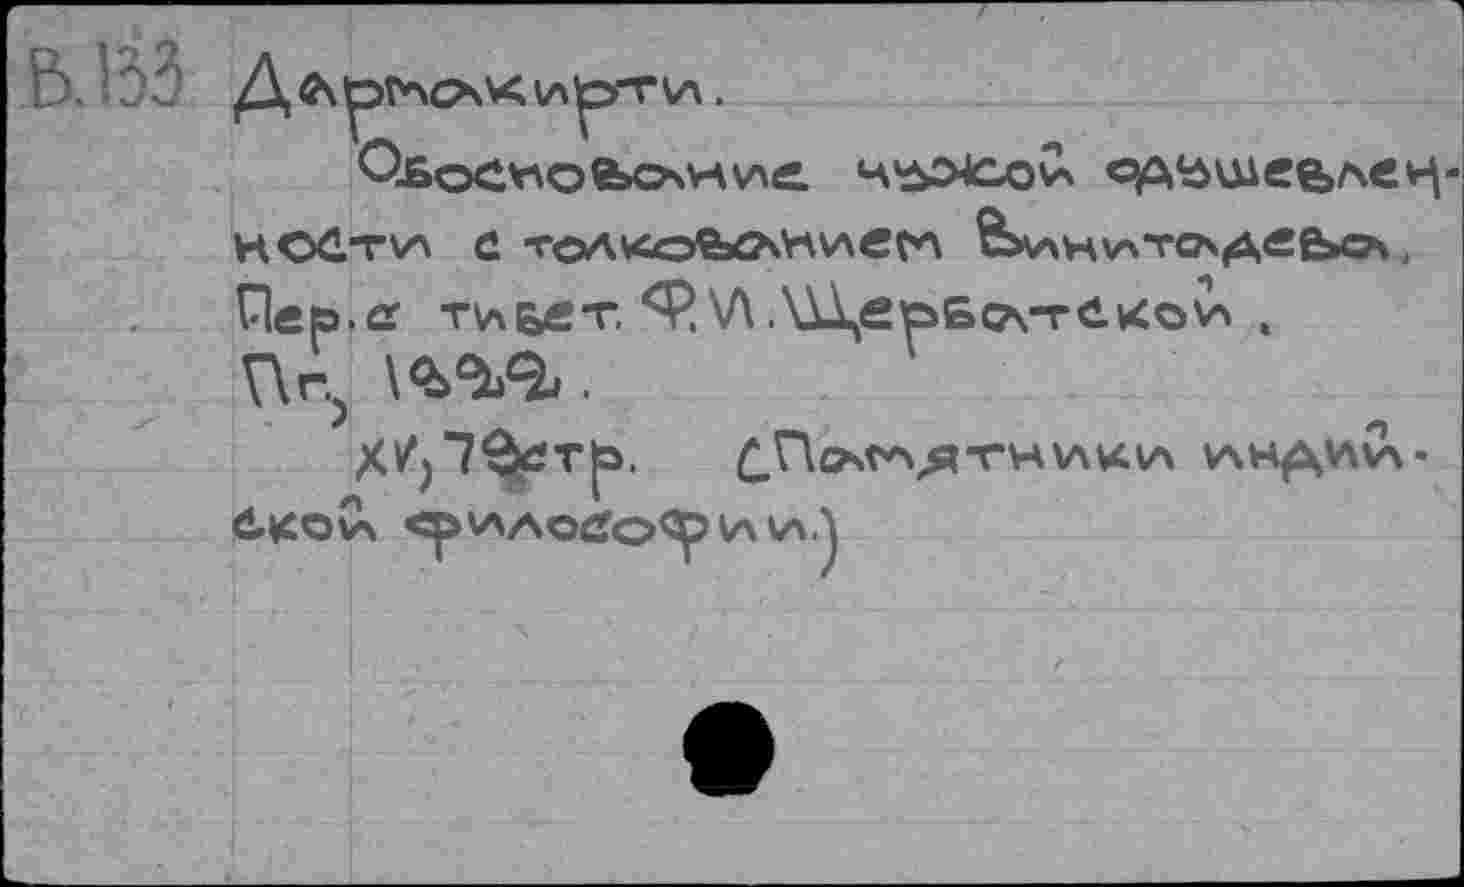 В.133 Дармакирти.
Обоснование чужой одушевлен-
ности с толкованием Винитадева,
Пер. с тибет. Ф.И. Щербатской.
Пг., 1922.
XV, 79 стр. (Памятники индий-
ской философии.)